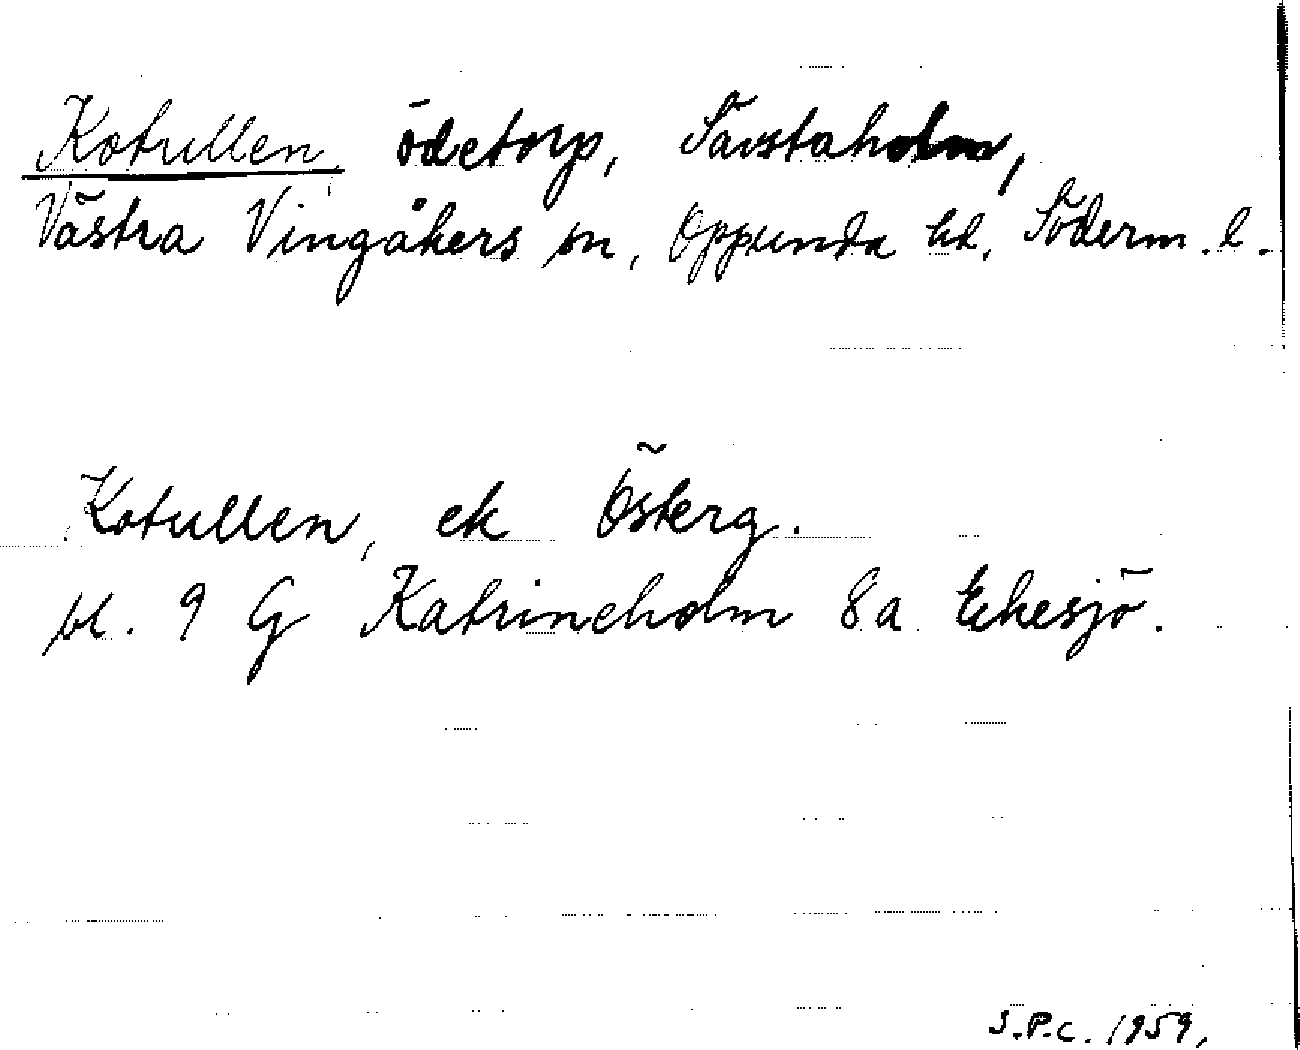 Kotullen, ödetorp, Sävstaholm,
Västra Vingåkers sn, Oppunda hd, Söderm. l.
Kotullen, ek Österg.
bl. 9 G Katrineholm 8a Ekesjö.
S.P.C. 1959,